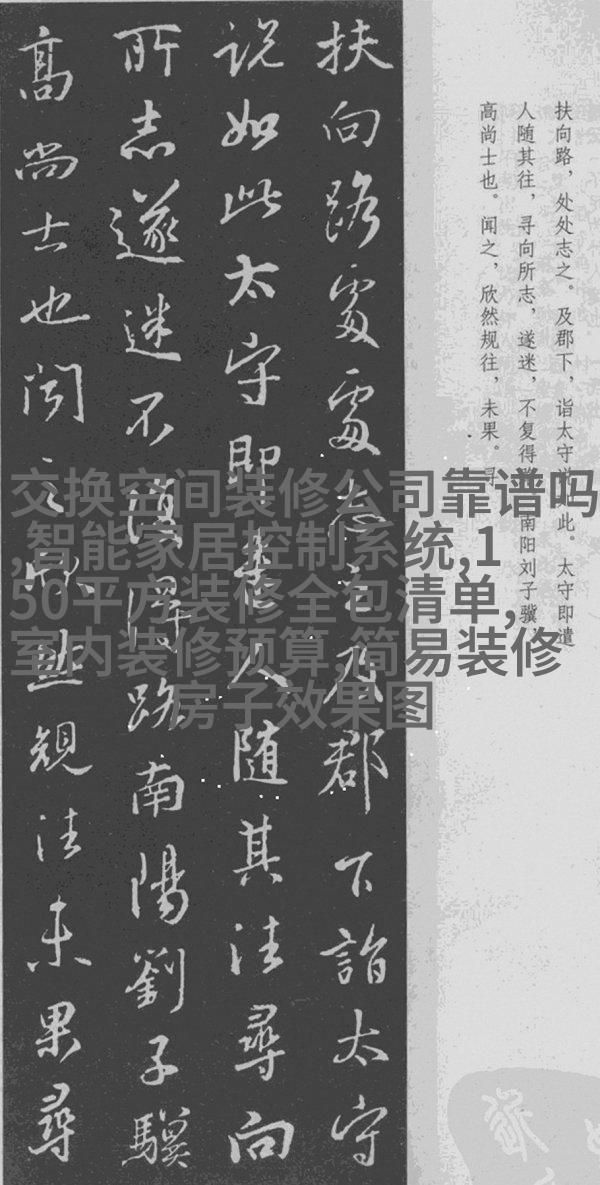 扶向路，处处志之。及郡下，诣太守说此。太守即遣
人随其往，寻向所志，遂迷，不复得南阳刘子骥，
高尚士也。闻之，欣然规往，未果。寻
扶向路處處志之及郡下詣太守
说如此太守即遣人随其往尋向
所志遂迷不復得路南陽劉子驥
高尚士也聞之欣然規往未果尋
交换空间装修公司靠谱吗
,智能家居控制系统,1
50平方装修全包清单,
室内装修预算,简易装修
房子效果图